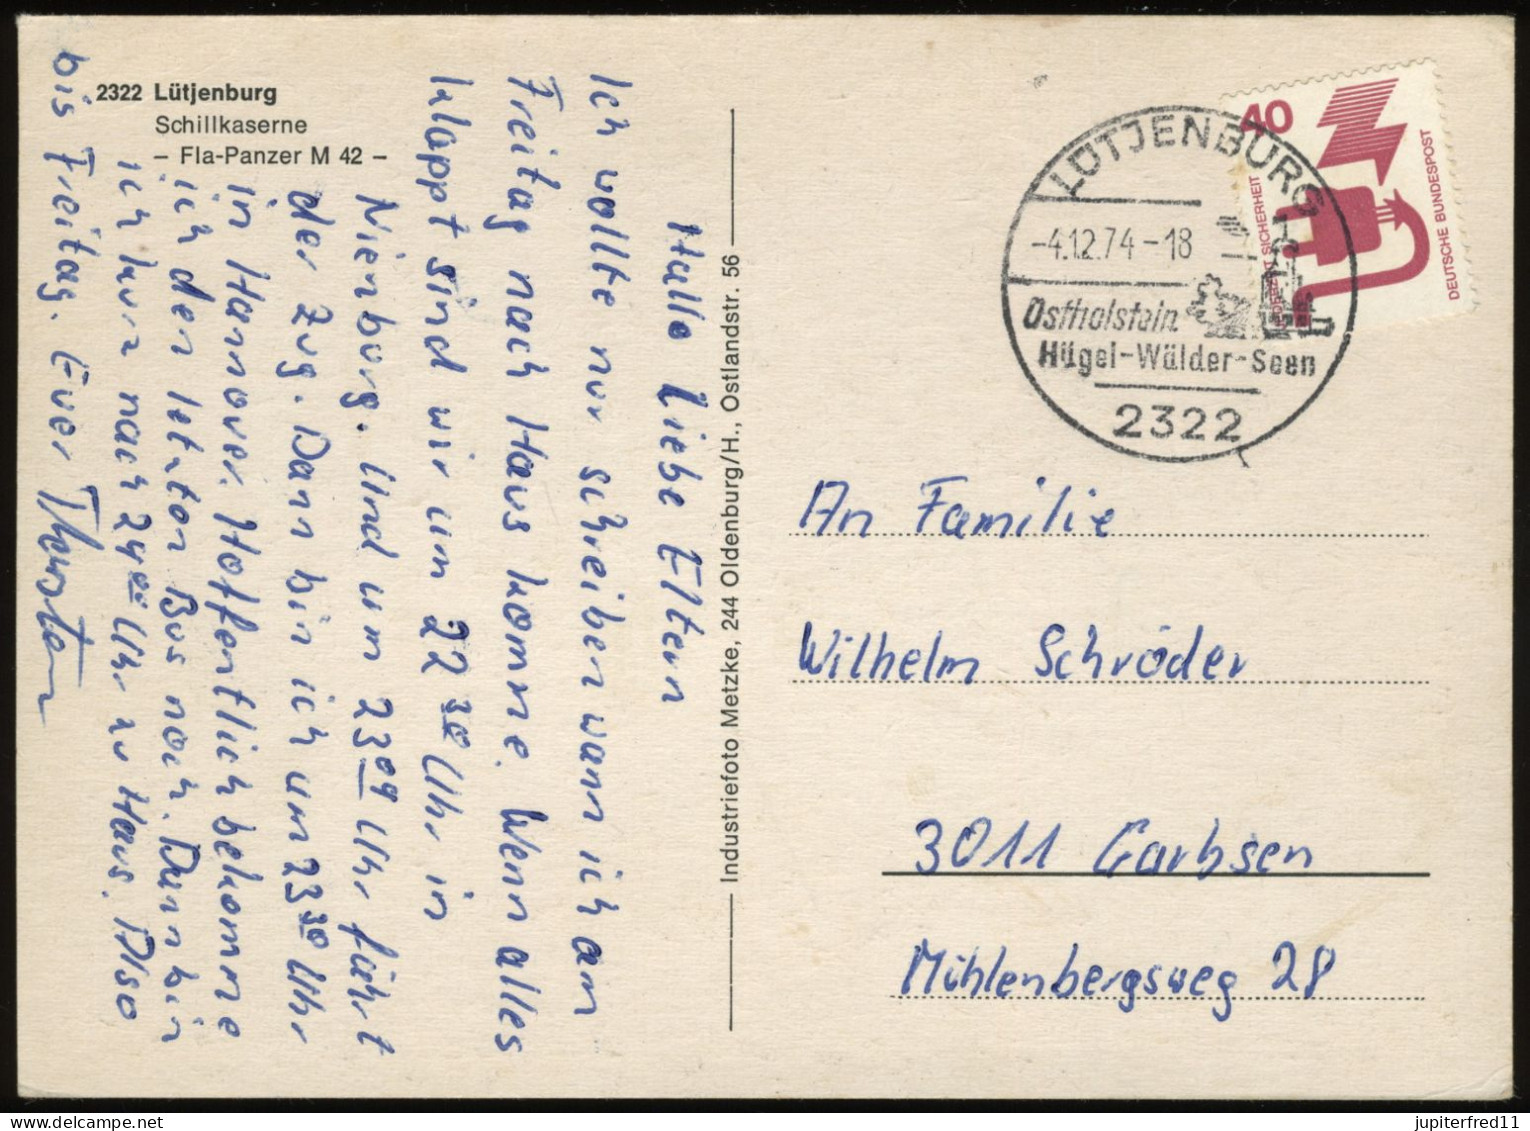 2322 Lütjenburg
Schillkaserne
– Fla-Panzer M 42 –
Hallo Liebe Eltern
Ich wollte nur schreiben wann ich am
Freitag nach Haus komme. Wenn alles
klappt sind wir um 22 30 Uhr in
Nienburg. Und um 23 09 Uhr fährt
der Zug. Dann bin ich um 23 30 Uhr
in Hannover. Hoffentlich bekomme
ich den letzten Bus noch. Dann bin
ich kurz nach 24 00 Uhr zu Haus. Also
bis Freitag. Euer Thorsten
Industriefoto Metzke, 244 Oldenburg/H., Ostlandstr. 56
40
DEUTSCHE BUNDESPOST
SICHERHEIT
LÜTJENBURG
-4.12.74-18
Ostholstein
Hügel-Wälder-Seen
2322
An Familie
Wilhelm Schröder
3011 Garbsen
Mühlenbergsweg 28
jupiterfred11